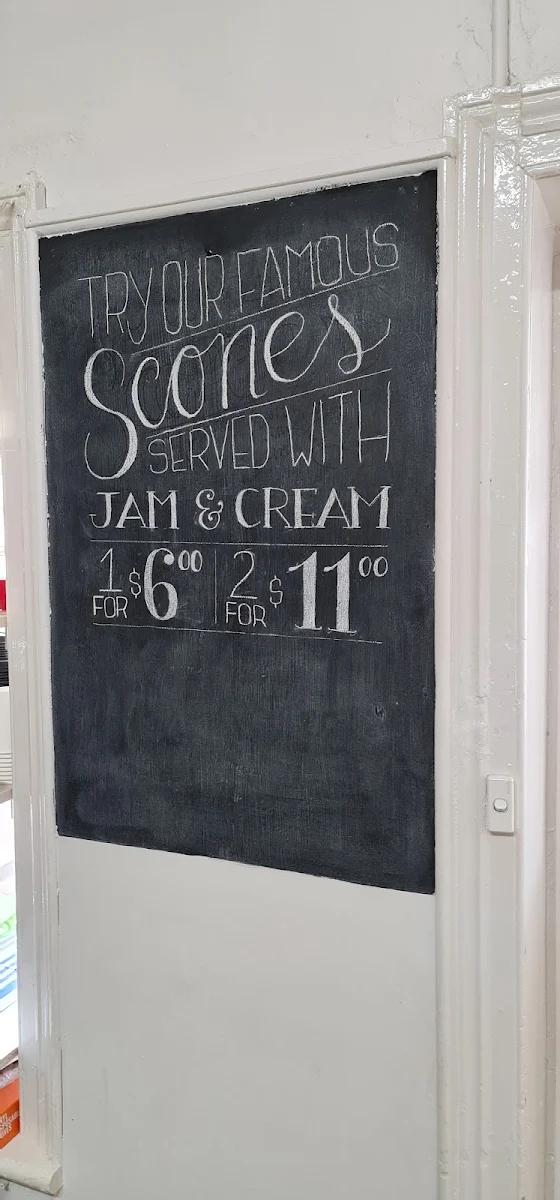 TRY OUR FAMOUS
Scones
SERVED WITH
JAM & CREAM
1 FOR $6.00 | 2 FOR $11.00